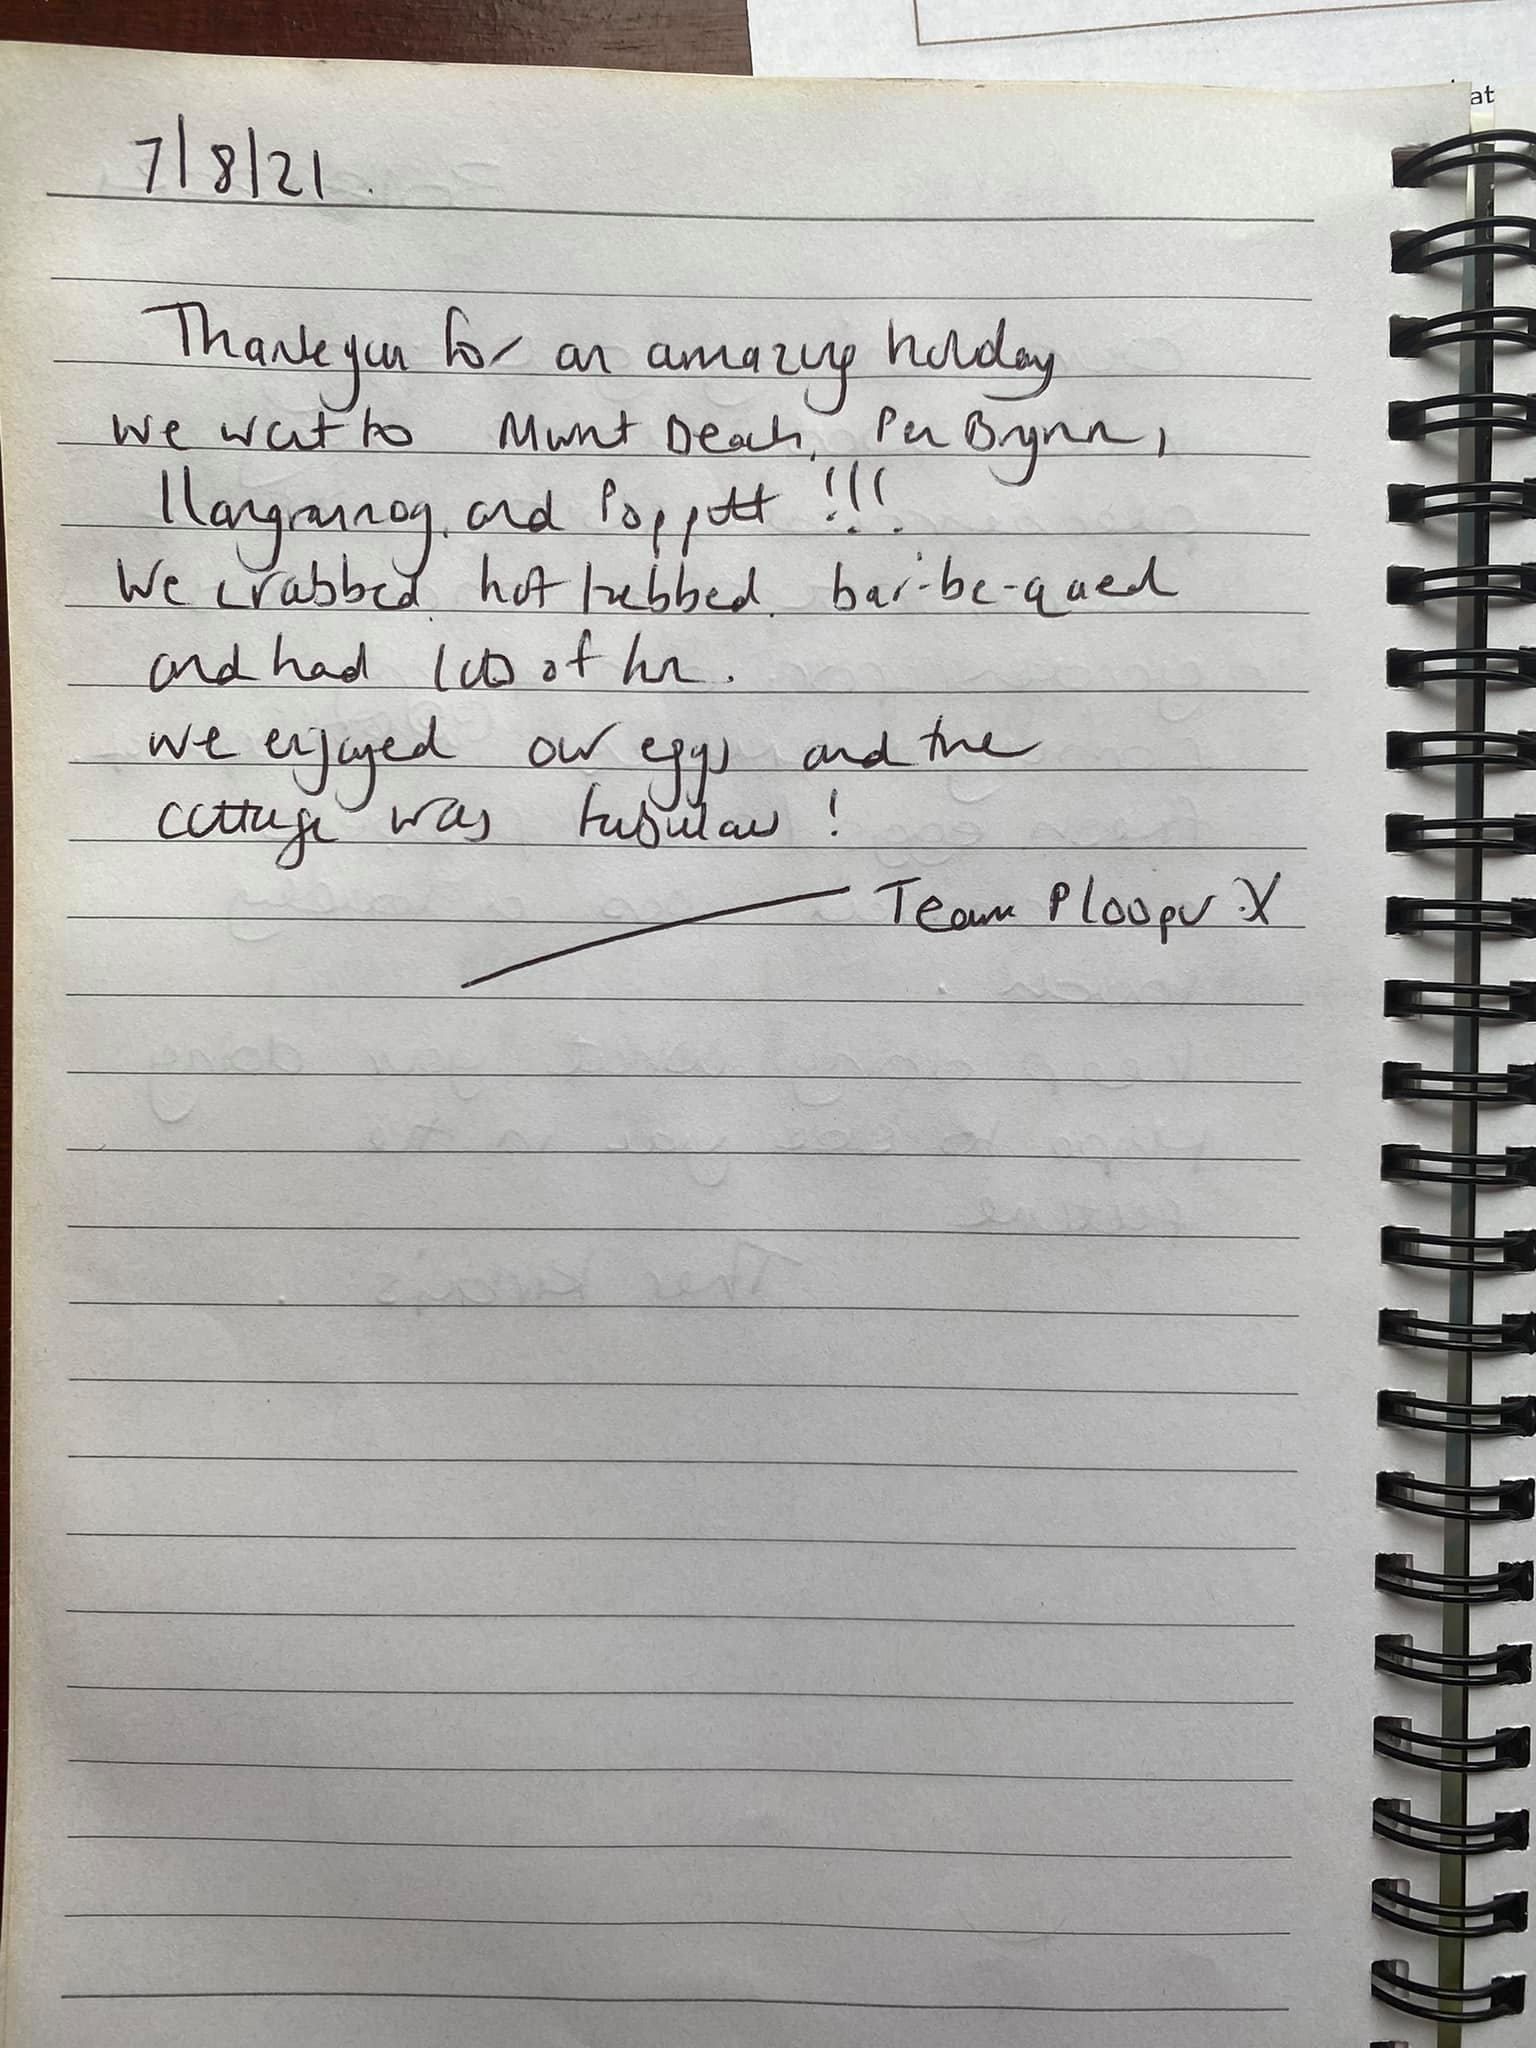 at
7/8/21.
Thankyou for an amazing holiday
we went to Mwnt Beach, Pen Brynn,
llangrannog, and Poppitt !!!
We crabbed, hot tubbed, bar-be-qued
and had lots of fun.
we enjoyed our eggs and the
cottage was fabulous !
Team Plooper X